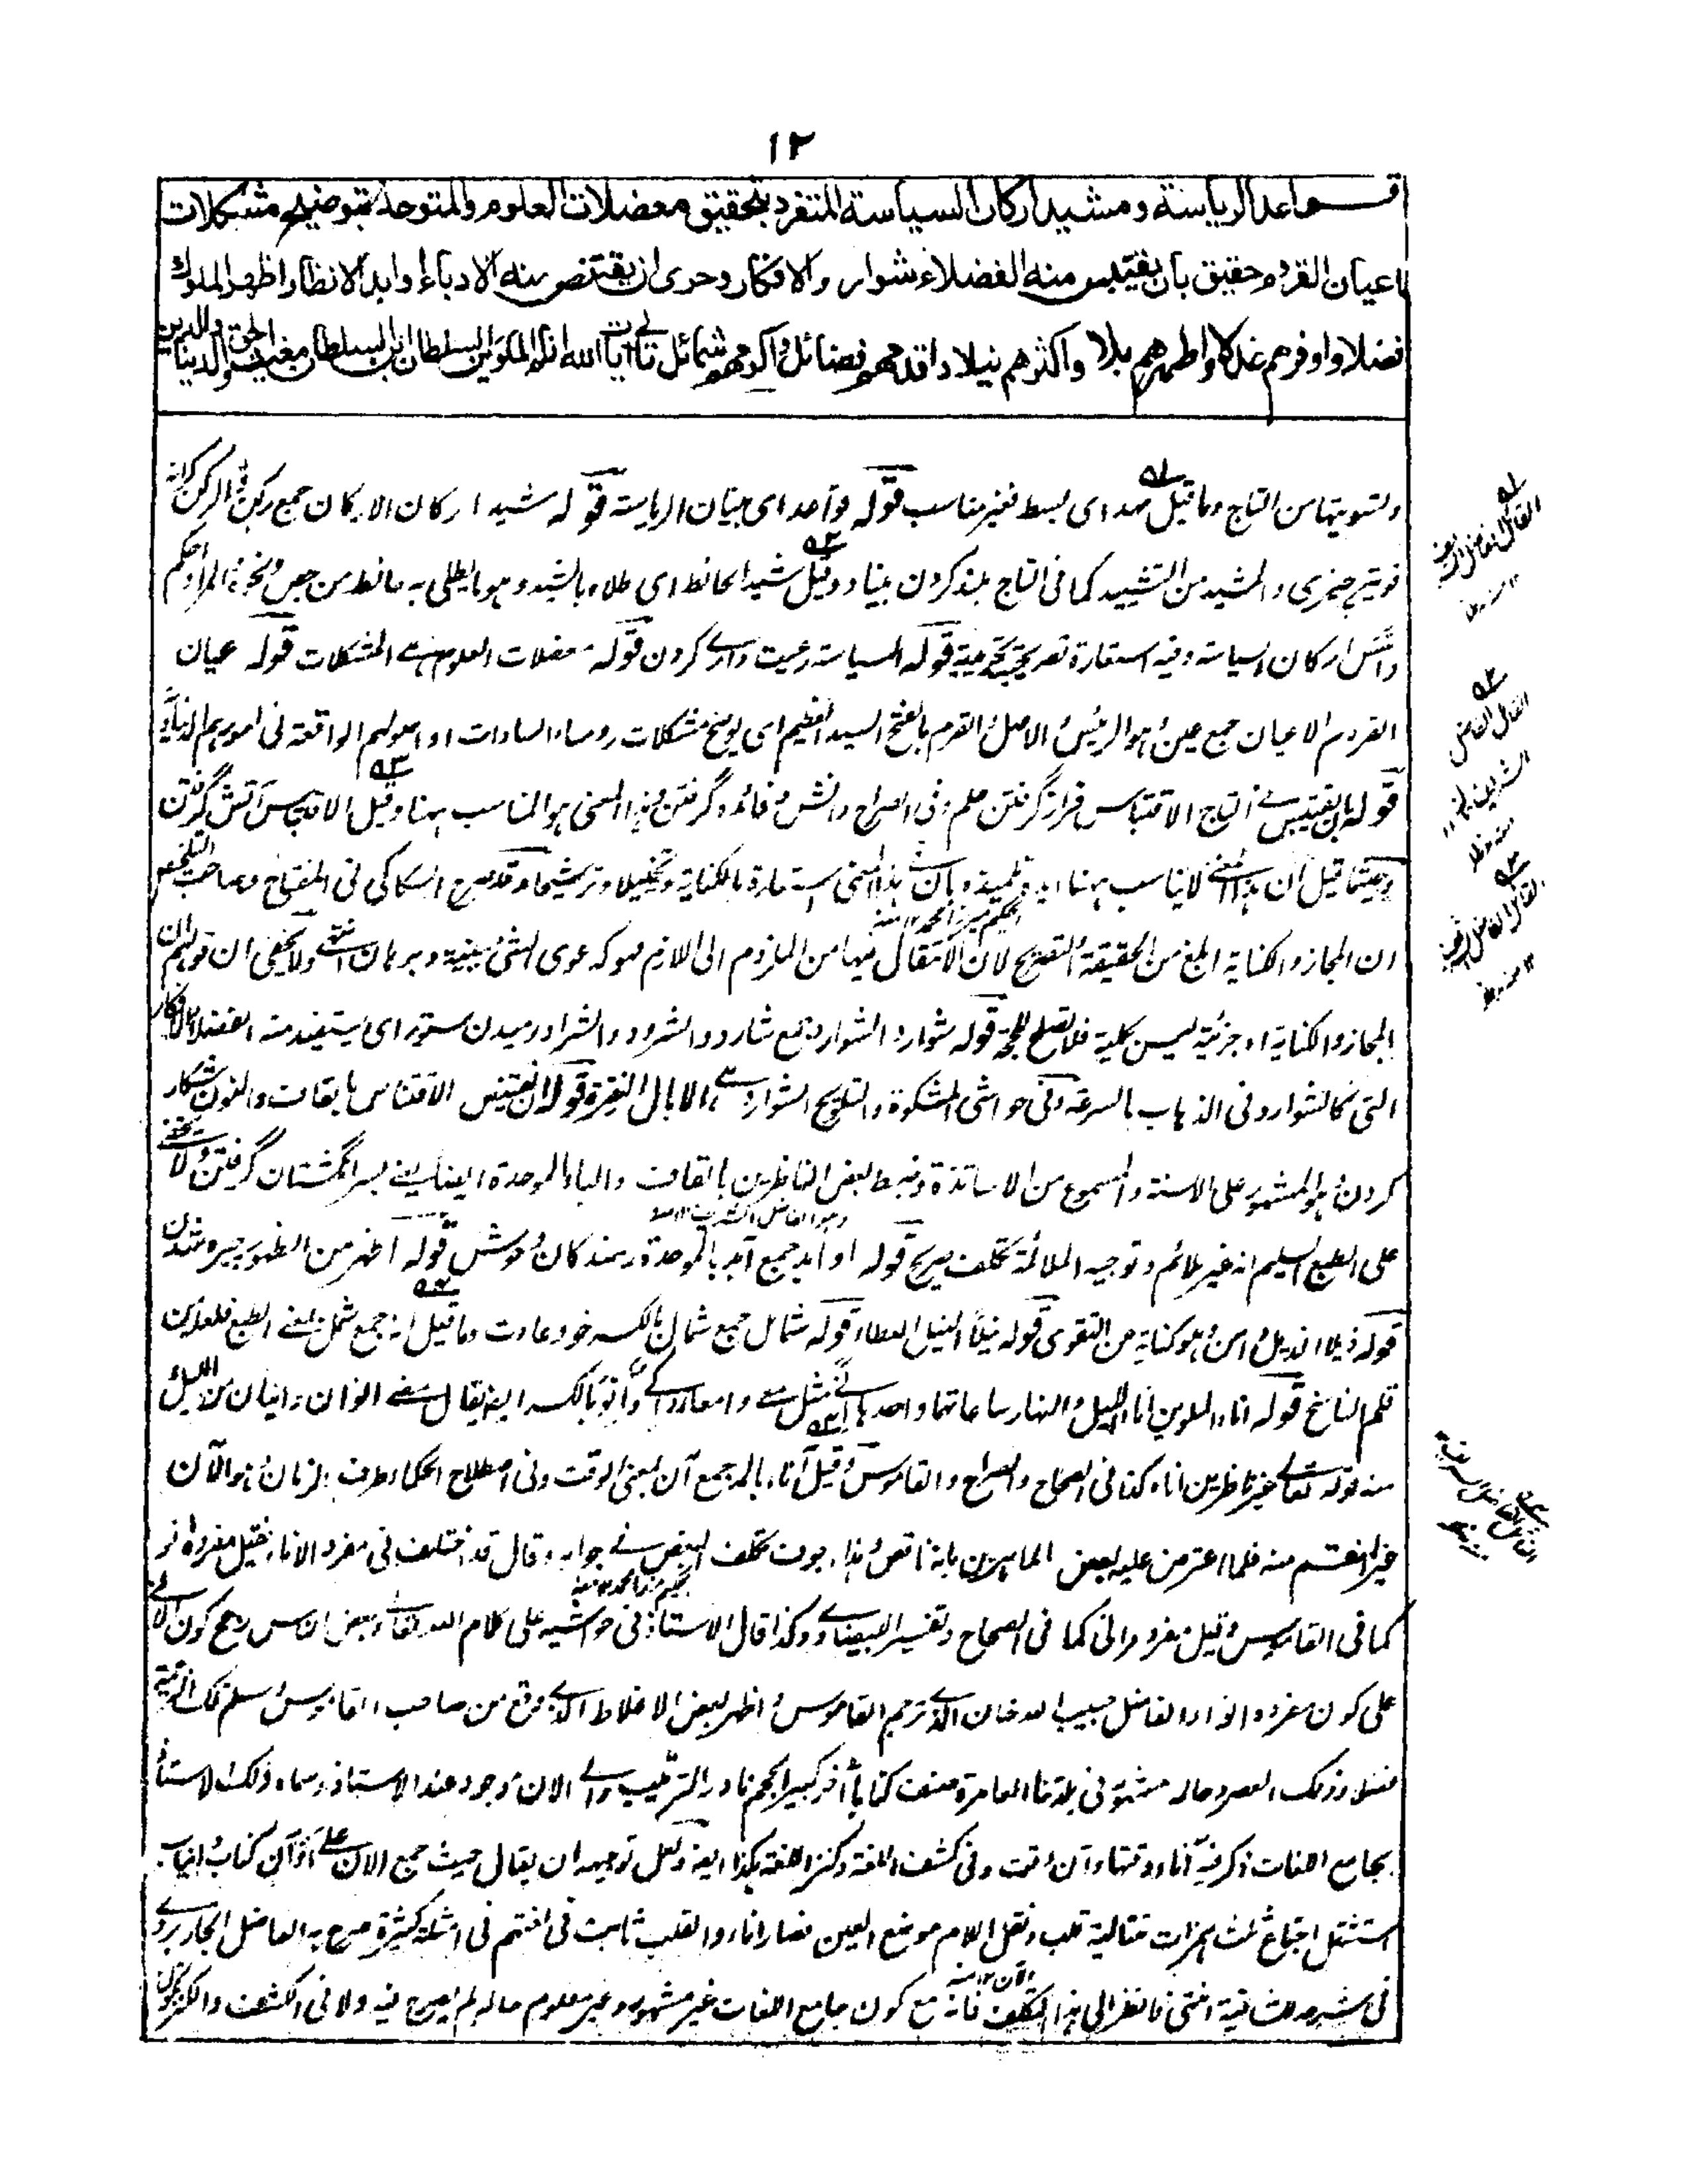 ١٢
قواعد الرياسة ومشيد اركان السياسة المتفرد بتحقيق معضلات العلوم والمتوحد بتوضيح مشكلات
اعيان القروم حقيق بان يقتبس منه الفضلاء شوارد الافكار وحرى ان يقتنص منه الادباء اوابد الانظار اظهر الملوك
فضلا واوفرهم عدلا واطهرهم ذيلا واكثرهم نيلا واقدمهم فضائل واكرمهم شمائل تالي آيات الله اناء الملوين السلطان ابن السلطان مغيث الحق والدنيا والدين
وتسويتها من التاج وما قيل مهد اى بسط فغير مناسب قوله قواعد اى بنيان الرياسة قوله مشيد اركان الاركان جمع ركن الركن كرانه
قوى تر چيزى والمشيد من التشييد كما فى التاج بلند كردن بناء وقيل شيد الحائط اى طلاه بالشيد وهو ما يطلى به حائط من جص ونحوه المراد محكم
اركان السياسة وفيه استعارة تصريحية قوله السياسة رعيت دارى كردن قوله معضلات العلوم اى المشكلات قوله عيان
القروم الاعيان جمع عين هو الرئيس والاصل القرم بالفتح السيد العظيم اى يوضح مشكلات روساء السادات او اصولهم الواقعة فى امورهم
قوله بان يقتبس فى التاج الاقتباس فرا گرفتن علم وفى الصراح دانش وفائده گرفتن وهذا المعنى هو المناسب ههنا وقيل الاقتباس آتش گرفتن
وحيثما قيل ان هذا المعنى لا يناسب ههنا ايده تلميذه بان فى هذا المعنى استعارة بالكناية وتخييلا وترشيحا وقد صرح السكاكى فى المفتاح وصاحب التلخيص
ان المجاز والكناية ابلغ من الحقيقة والتصريح لان الانتقال فيهما من الملزوم الى اللازم فهو كدعوى الشئ ببينة وبرهان انتهى ولا يخفى ان قولهم
المجاز والكناية اه جزئية ليس بكلية فلا تصلح للحجة قوله شوارد الشوارد جمع شارد والشرود والشراد رميدن ستور اى يستفيد منه الفضلاء الافكار
التى كالشوارد فى الذهاب بالسرعة وفى حواشى المشكوة والتلويح الشوارد هى الابال النفرة قوله ان يقتنص الاقتناص بالقاف والنون شكار
كردن هو المشهور على الالسنة والمسموع من الاساتذة وضبط بعض الناظرين بالقاف والباء الموحدة ايضا يعنى بسر انگشتان گرفتن ولا يخفى
على الطبع السليم انه غير ملائم وتوجيه الملائمة تكلف صريح قوله اوابد جمع آبد بالموحدة رمندگان وحوش قوله اظهر من الظهور چيره شدن
قوله ذيلا الذيل دامن هو كناية من التقوى قوله نيلا النيل العطاء قوله شمائل جمع شمال بالكسر خو وعادت وما قيل انه جمع شمل بمعنى الطبع فلعله من
قلم الناسخ قوله اناء الملوين اناء الليل والنهار ساعاتهما واحدها انى مثل معى وامعاء وانى وانو بالكسر ايضا يقال مضى انوان وانيان من الليل
منه قوله تعالى غير ناظرين اناه كذا فى الصحاح والصراح والقاموس وقيل آناء بالمد جمع آن بمعنى الوقت وفى اصطلاح الحكماء طرف الزمان هو الآن
غير المنقسم منه فلما اعترض عليه بعض الماهرين بانه ناقص وهذا اجوف تكلف البعض فى جوابه وقال قد اختلف فى مفرد الاناء فقيل مفرده انو
كما فى القاموس وقيل مفرده انى كما فى الصحاح وتفسير البيضاوى وكذا قال الاستاذ فى حواشيه على كلام الله تعالى وبعض الناس رجح كون الانى
على كون مفرده انو اذ الفاضل حبيب الله خان الذى ترجم القاموس واظهر بعض الاغلاط الذى وقع من صاحب القاموس وسلم تلك الترجمة
فضلاء ذلك العصر وحاله مشهور فى بلدتنا العامرة صنف كتابا آخر كبير الحجم نادر الترتيب والى الان موجود عند الاستاذ وسماه ذلك الاستاذ
بجامع اللغات ذكر فيه آناء وقتها وآن وقت وفى كشف اللغة وكنز اللغة هكذا ايضا ولعل توجيهه ان يقال حيث جمع الان على اوآن
استثقل اجتماع ثلث همزات متتالية قلب ونقل اللام موضع العين فصار اناء والقلب ثابت فى لغتهم فى امثلة كثيرة صرح به الفاضل الجاربردى
فى شرح الشافية انتهى فانظر الى هذا التكلف فانه مع كون جامع اللغات غير مشهور وغير معلوم حاله لم يصرح فيه ولا فى الكشف والكنز